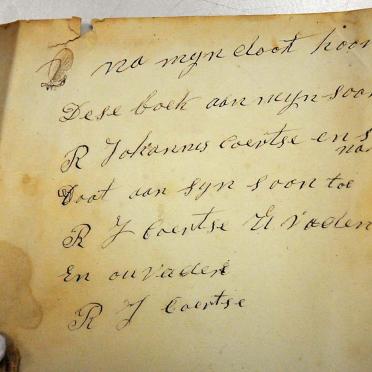 na myn doot hoor
Dese boek aan myn soon
R Johannis Coertse en s
na
Doot aan syn soon toe
R J Coertse U vader
En ouvader
R J Coertse